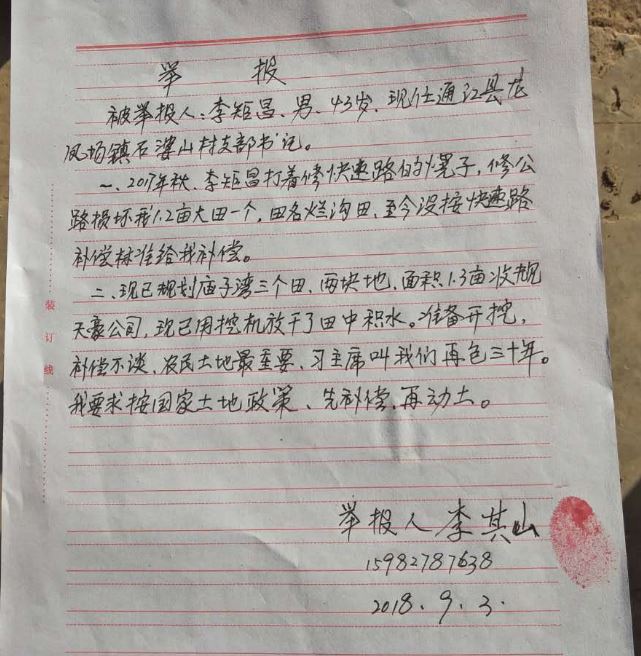 举报
被举报人：李矩昌、男、43岁、现任通江县龙
凤场镇石渡山村支部书记。
一、2017年秋、李矩昌打着修快速路的幌子，修公
路损坏我1.2亩大田一个，田名烂沟田、至今没按快速路
补偿标准给我补偿。
二、现已规划庙子湾三个田、两块地，面积1.3亩收规
天豪公司，现已用挖机放干了田中积水。准备开挖，
补偿不谈、农民土地最重要、习主席叫我们再包三十年。
我要求按国家土地政策、先补偿、再动土。
举报人 李其山
15982787638
2018.9.3.
装订线